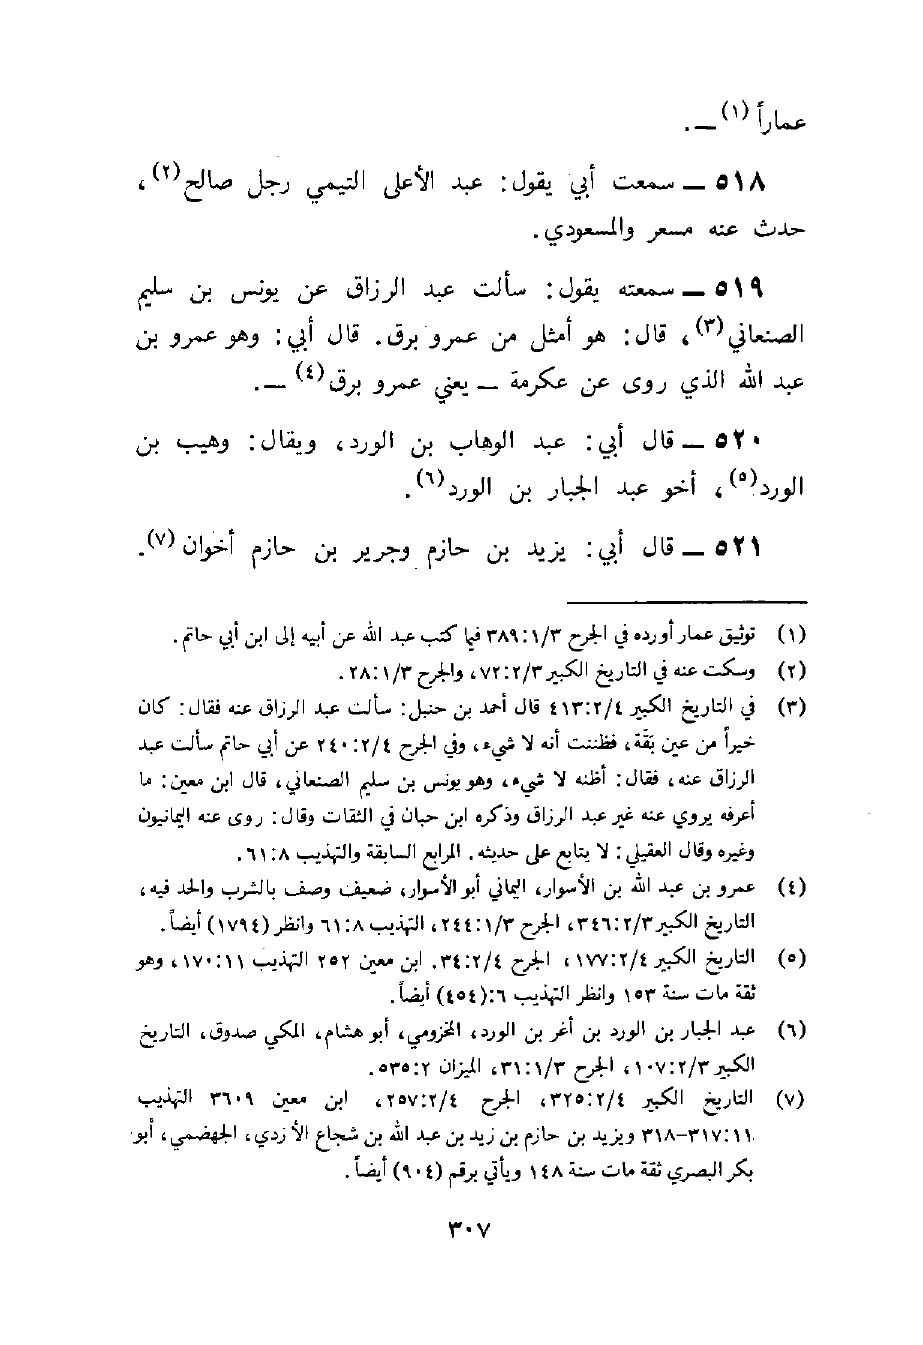 عماراً (١) ــ .
٥١٨ ــ سمعت أبي يقول: عبد الأعلى التيمي رجل صالح (٢)،
حدث عنه مسعر والمسعودي.
٥١٩ ــ سمعته يقول: سألت عبد الرزاق عن يونس بن سليم
الصنعاني (٣)، قال: هو أمثل من عمرو برق. قال أبي: وهو عمرو بن
عبد الله الذي روى عن عكرمة ــ يعني عمرو برق (٤) ــ.
٥٢٠ ــ قال أبي: عبد الوهاب بن الورد، ويقال: وهيب بن
الورد (٥)، أخو عبد الجبار بن الورد (٦).
٥٢١ ــ قال أبي: يزيد بن حازم وجرير بن حازم أخوان (٧).
(١) توثيق عمار أورده في الجرح ٣٨٩:١/٣ فيما كتب عبد الله عن أبيه إلى ابن أبي حاتم.
(٢) وسكت عنه في التاريخ الكبير ٧٢:٢/٣، والجرح ٢٨:١/٣.
(٣) في التاريخ الكبير ٤١٣:٢/٤ قال أحمد بن حنبل: سألت عبد الرزاق عنه فقال: كان
خيراً من عين بَقَّة، فظننت أنه لا شيء، وفي الجرح ٢٤٠:٢/٤ عن أبي حاتم سألت عبد
الرزاق عنه، فقال: أظنه لا شيء، وهو يونس بن سليم الصنعاني، قال ابن معين: ما
أعرفه يروي عنه غير عبد الرزاق وذكره ابن حبان في الثقات وقال: روى عنه اليمانيون
وغيره وقال العقيلي: لا يتابع على حديثه. المراجع السابقة والتهذيب ٦١:٨.
(٤) عمرو بن عبد الله بن الأسوار، اليماني أبو الأسوار، ضعيف وصف بالشرب والحد فيه،
التاريخ الكبير ٣٤٦:٢/٣، الجرح ٢٤٤:١/٣، التهذيب ٦١:٨ وانظر (١٧٩٤) أيضاً.
(٥) التاريخ الكبير ١٧٧:٢/٤، الجرح ٣٤:٢/٤. ابن معين ٢٥٢ التهذيب ١٧٠:١١، وهو
ثقة مات سنة ١٥٣ وانظر التهذيب ٦:(٤٥٤) أيضاً.
(٦) عبد الجبار بن الورد بن أغر بن الورد، المخزومي، أبو هشام، المكي صدوق، التاريخ
الكبير ١٠٧:٢/٣، الجرح ٣١:١/٣، الميزان ٥٣٥:٢.
(٧) التاريخ الكبير ٣٢٥:٢/٤، الجرح ٢٥٧:٢/٤، ابن معين ٣٦٠٩ التهذيب
٣١٧:١١–٣١٨ ويزيد بن حازم بن زيد بن عبد الله بن شجاع الأزدي، الجهضمي، أبو
بكر البصري ثقة مات سنة ١٤٨ ويأتي برقم (٩٠٤) أيضاً.
٣٠٧